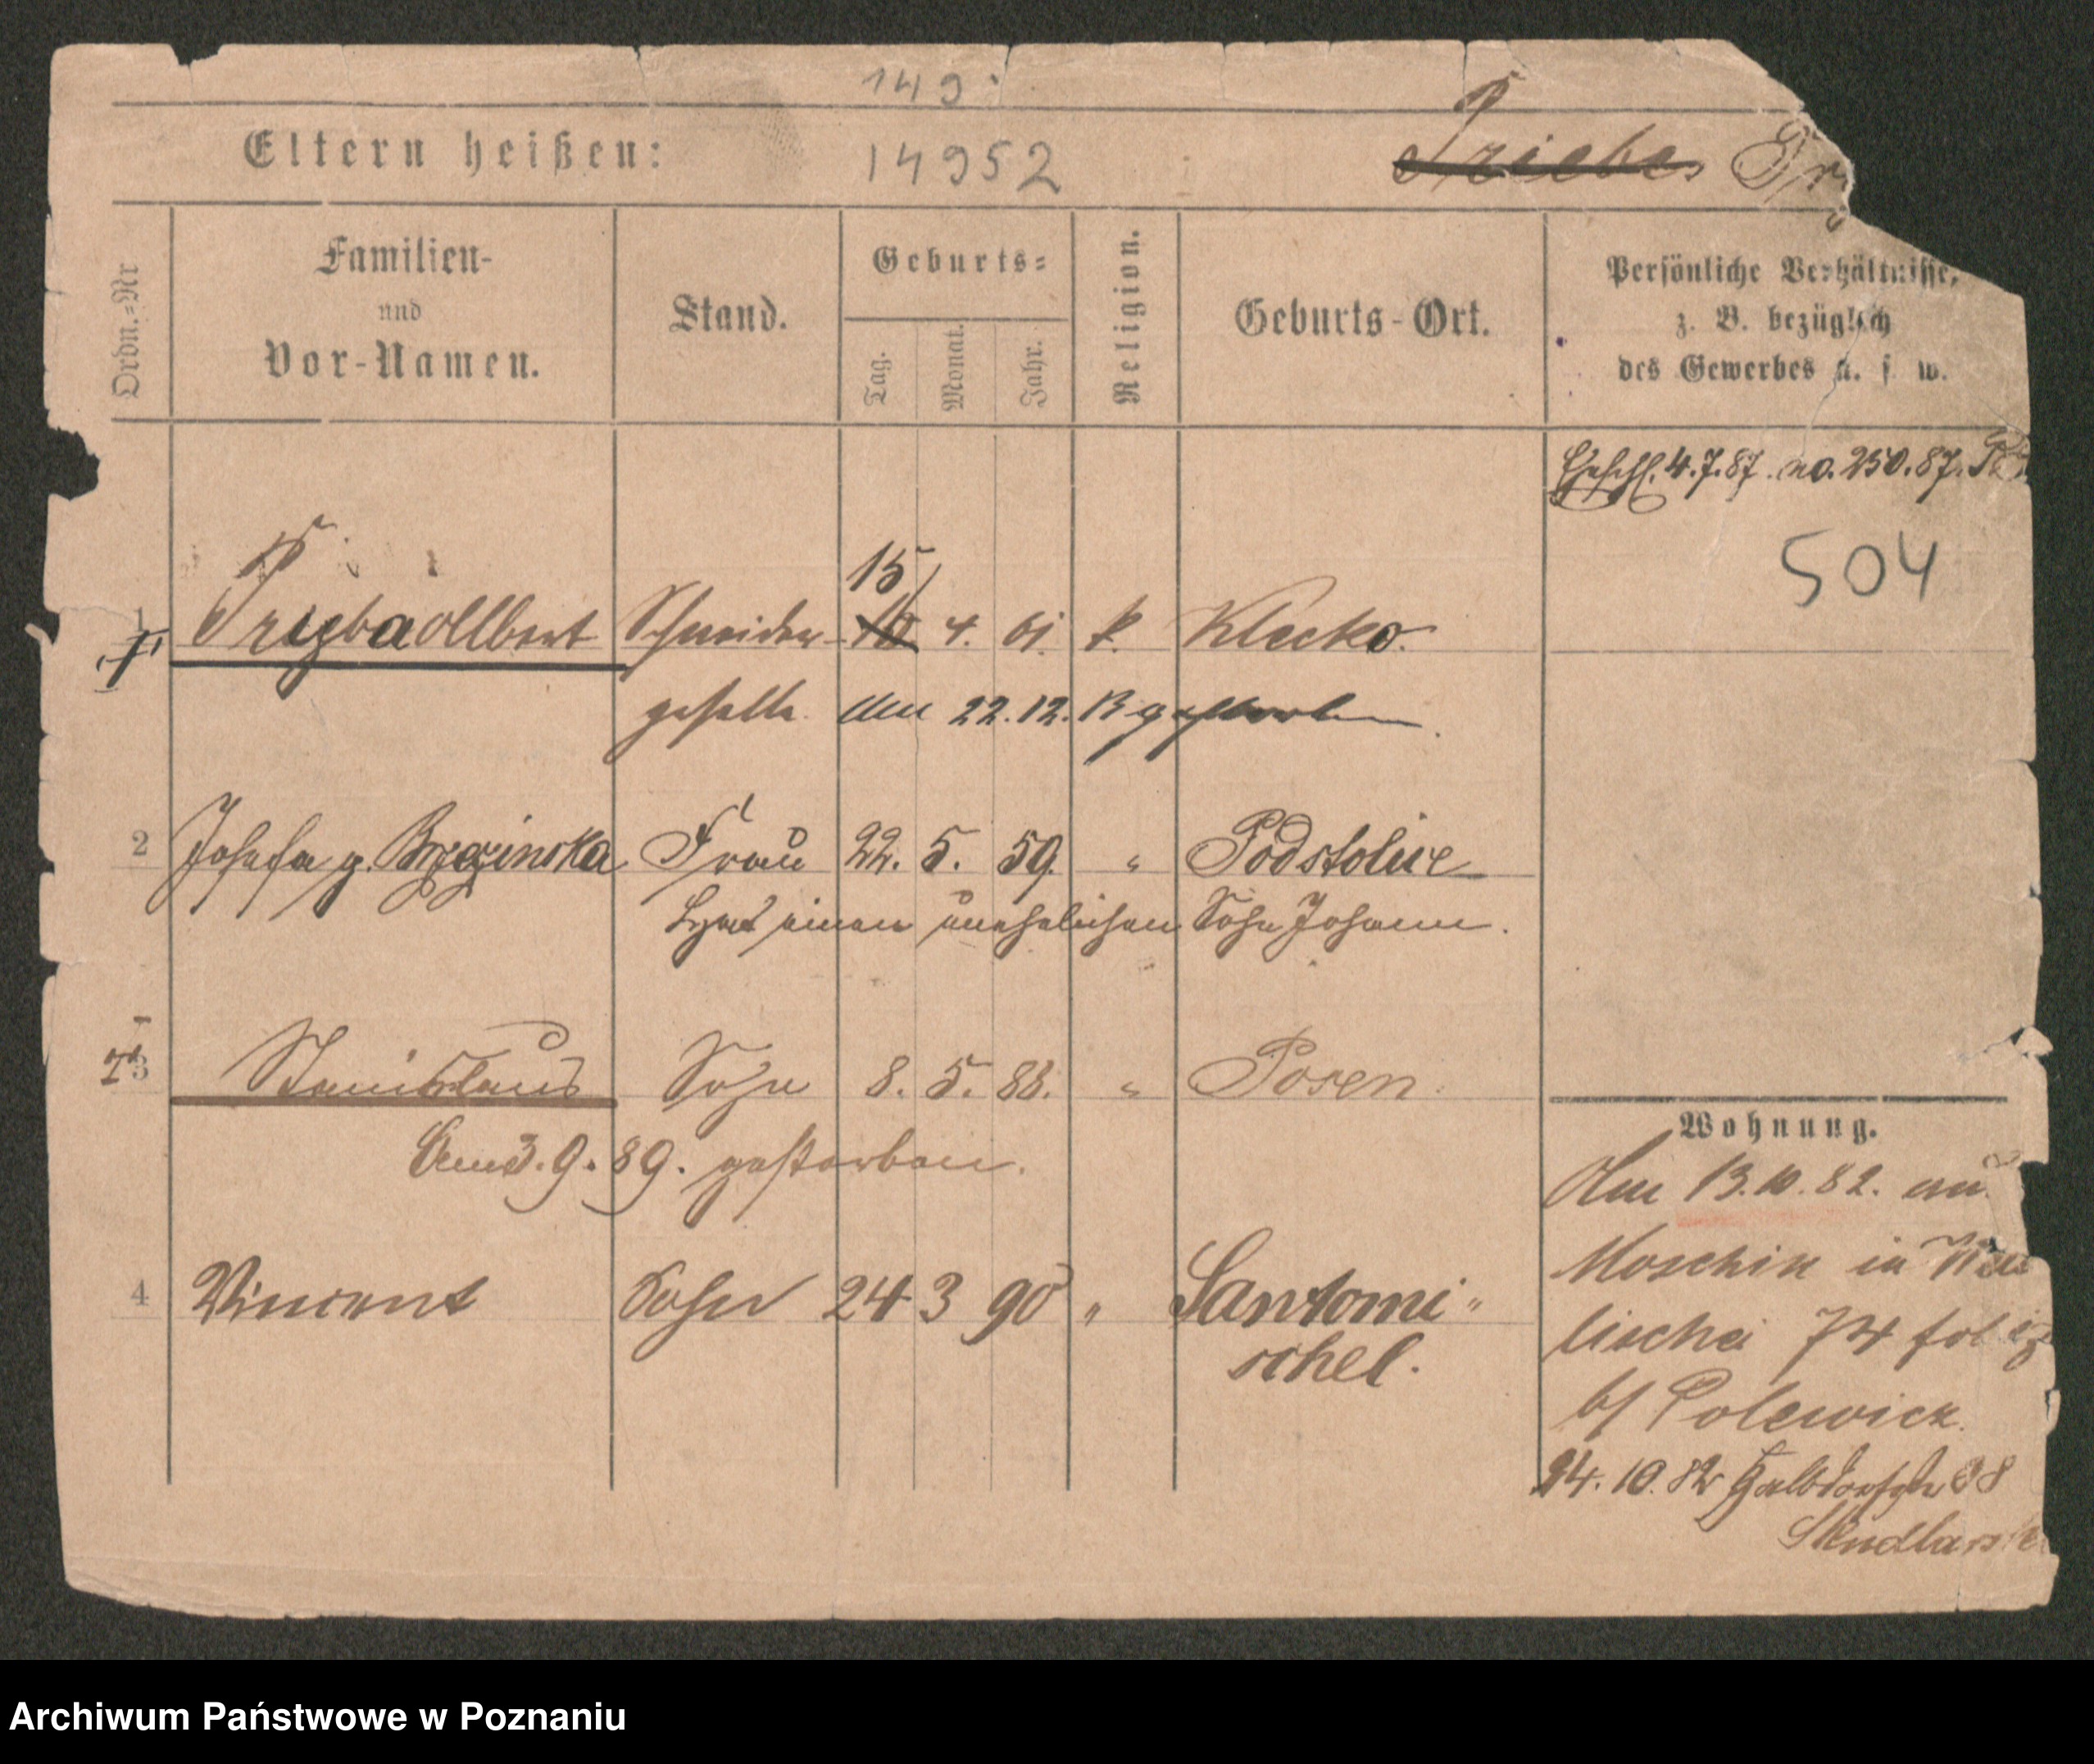 149
Eltern heißen: 14952 Triebe Tr
Ordn.-Nr
Familien-
und
Vor-Namen.
Stand.
Geburts-
Tag.
Monat.
Jahr.
Religion.
Geburts-Ort.
Persönliche Verhältnisse,
z. B. bezüglich
des Gewerbes u. s. w.
Eheschl. 4.7.87. no. 250.87.
504
15
1 Albert Schneider- 16 4. 61. k. Klecko.
geselle. den 22.12. gestorben
2 Josefa g. Brzezinska Frau 22. 5. 59. " Podstolice
Hat einen unehelichen Sohn Johann.
3 Stanislaus Sohn 8. 5. 88. " Posen.
Am 3.9.89. gestorben.
4 Vincent Sohn 24 3 90 " Santomi"
schel.
Wohnung.
Am 13.10.82. aus
Moschin in
b/ Polewicz.
24.10.82 Halbdorfstr 38
Archiwum Państwowe w Poznaniu